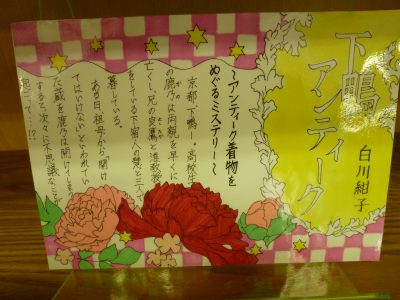 下鴨
アンティーク
白川紺子
～アンティーク着物を
めぐるミステリー～
京都、下鴨―。高校生
の鹿乃は両親を早くに
亡くし、兄の良鷹と准教授
をしている下宿人の慧と三人で
暮している。
ある日、祖母から「開け
てはいけない」といわれてい
た蔵を鹿乃は開けてしま
すると、次々に不思議なことが
起こって…!?